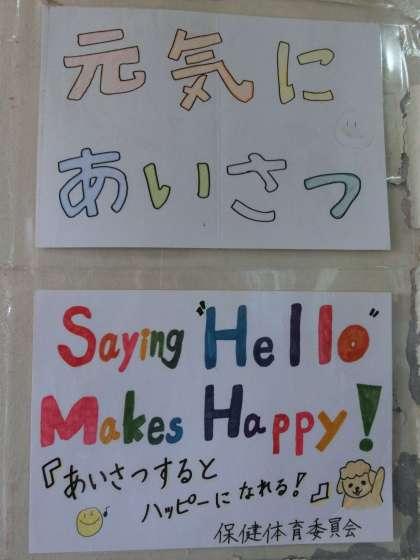 元気に
あいさつ
Saying "Hello"
Makes Happy!
『あいさつすると
ハッピーになれる!』
保健体育委員会